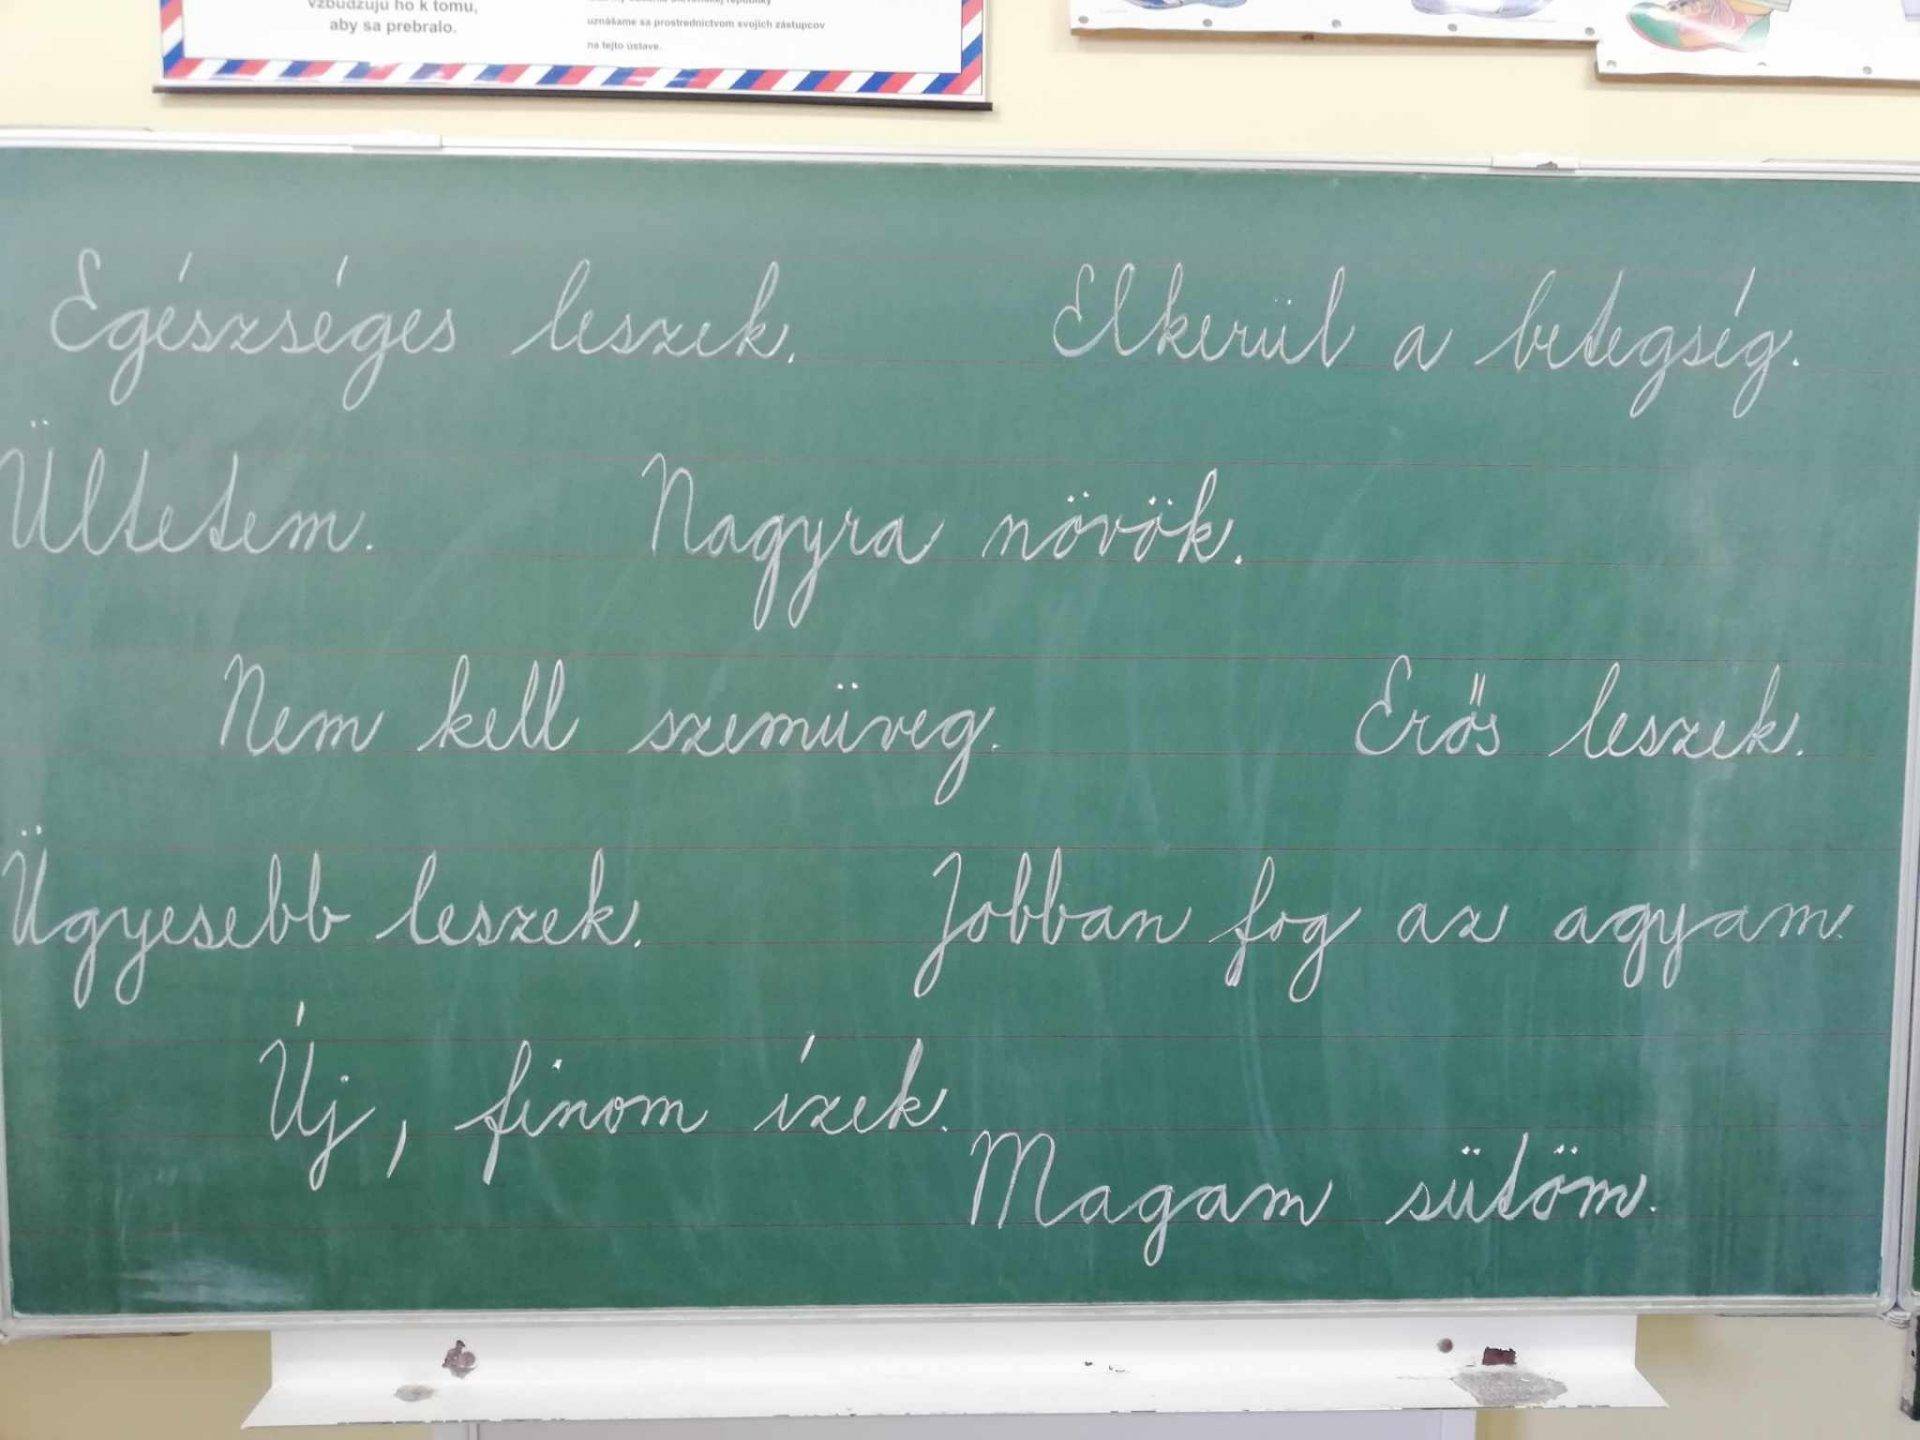 vzbudzujú ho k tomu,
aby sa prebralo.
uznášame sa prostredníctvom svojich zástupcov
na tejto ústave.
Egészséges leszek. Elkerül a betegség.
Ültetem. Nagyra növök.
Nem kell szemüveg. Erős leszek.
Ügyesebb leszek. Jobban fog az agyam.
Új, finom ízek.
Magam sütöm.